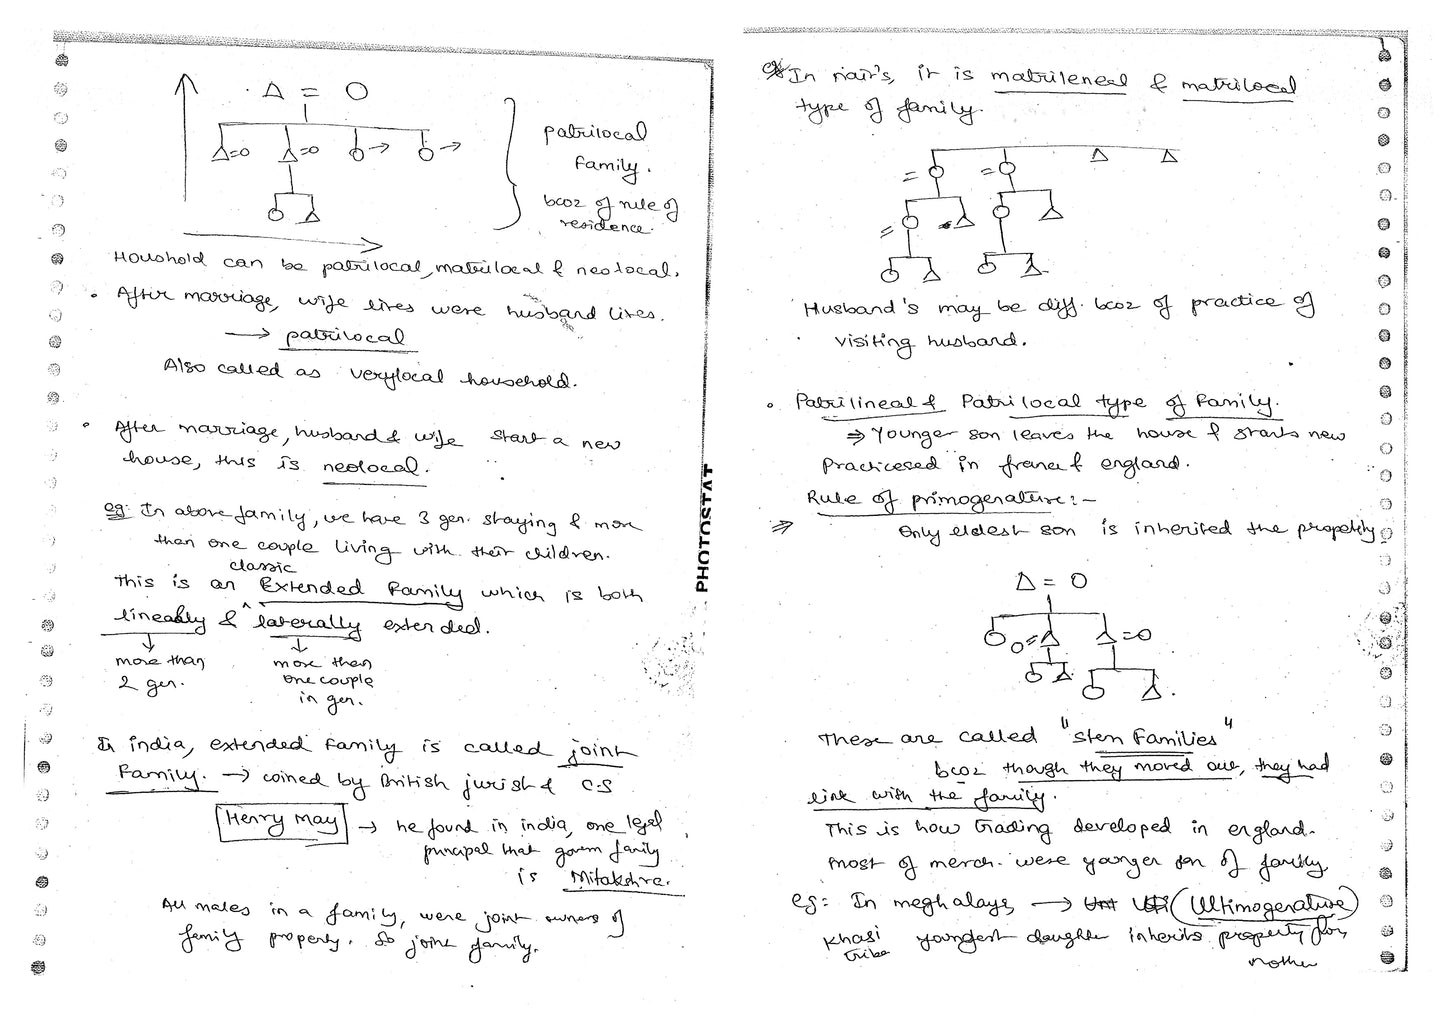 Δ = O
Δ=O Δ=O O→ O→
O Δ
patrilocal
family.
bcoz of rule of
residence.
Houshold can be patrilocal, matrilocal & neolocal.
• After marriage, wife lives were husband lives.
→ patrilocal
Also called as verylocal household.
• After marriage, husband & wife start a new
house, this is neolocal.
eg: In above family, we have 3 gen. staying & more
than one couple living with their children.
classic
This is an ^ Extended Family which is both
lineably & laterally extended.
more than
2 gen.
more than
one couple
in gen.
In india, extended family is called joint
Family. → coined by British jurist & C.S
Henry May → he found in india, one legal
principal that govern family
is Mitakshre.
All males in a family, were joint owners of
family property. So joint family.
PHOTOSTAT
eg In nair's, it is matrileneal & matrilocal
type of family.
Husband's may be diff. bcoz of practice of
visiting husband.
• Patrilineal & Patrilocal type of Family.
⇒ Younger son leaves the house & starts new
Practicesed in france & england.
Rule of primogenature:-
⇒ Only eldest son is inherited the propetty
Δ = O
O O=Δ Δ=O
O Δ O Δ.
These are called "Stem Families"
bcoz though they moved out, they had
link with the family.
This is how trading developed in england.
most of merch. were younger son of family.
eg: In meghalaya, → (Ultimogenature)
Khasi youngest daughter inherits property from
tribe
mother